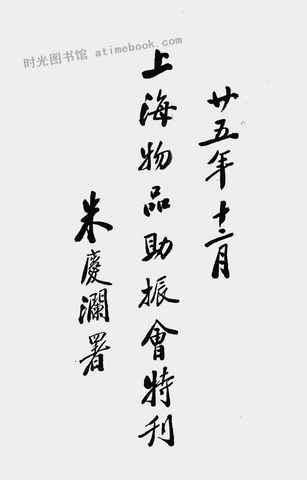 时光图书馆 atimebook.com
廿五年十二月
上海物品助振會特刊
米慶瀾署